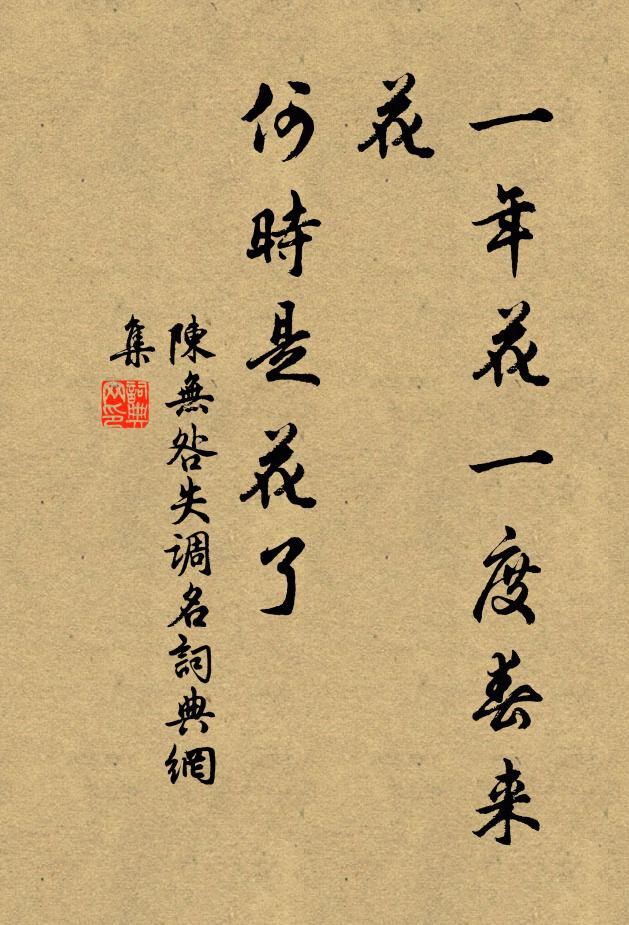 一年花一度春来
花
何時是花了
陳無咎失调名詞典網
集
詞典
网印